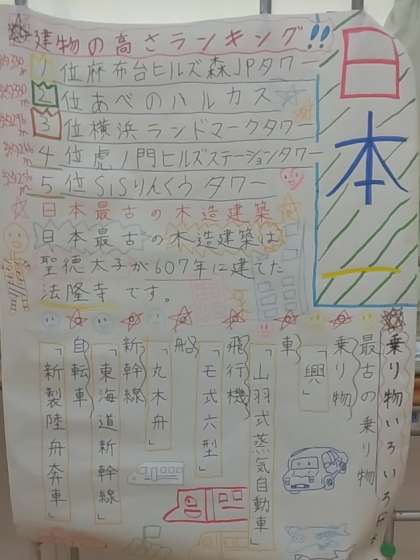 建物の高さランキング!!
日本
1位麻布台ヒルズ森JPタワー
2位あべのハルカス
3位横浜ランドマークタワー
4位虎ノ門ヒルズステーションタワー
5位SiSりんくうタワー
日本最古の木造建築
日本最古の木造建築は
聖徳太子が607年に建てた
法隆寺です。
乗り物いろいろ
最古の乗り物
乗り物
「輿」
車
「山羽式蒸気自動車」
飛行機
「モ式六型」
船
「丸木舟」
新幹線
「東海道新幹線」
自転車
「新製陸舟奔車」